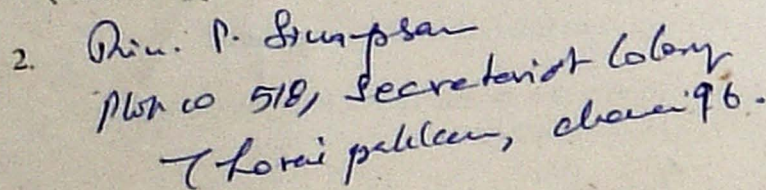 2. Thiru. P. Simpson
Plot no 518, Secretariat Colony
Thorai pakkam, chennai 96.